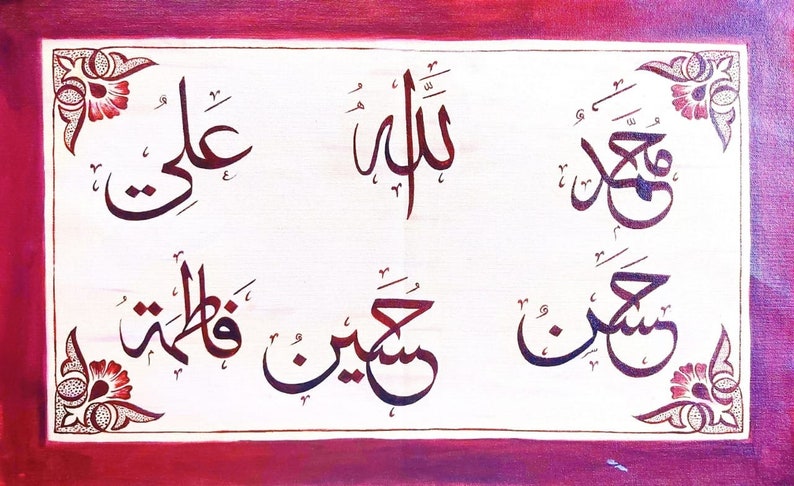 مُحَمَّدٌ اللّٰهُ عَلِيٌّ
حَسَنُ حُسَين فَاطِمَةُ